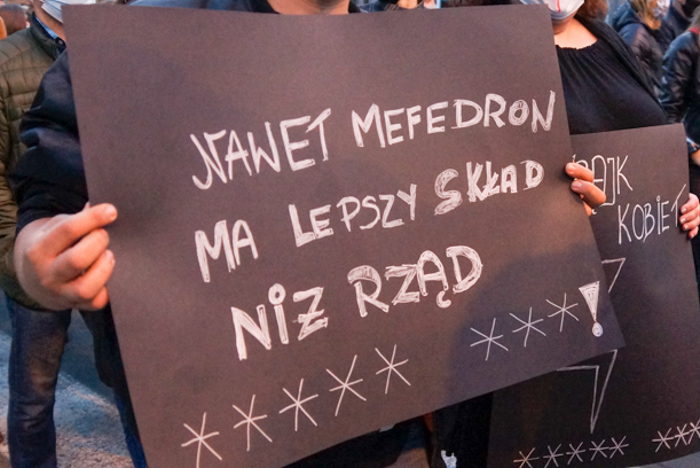 NAWET MEFEDRON
MA LEPSZY SKŁAD
NIZ RZĄD
***** ***!
KOBIET
***** ***